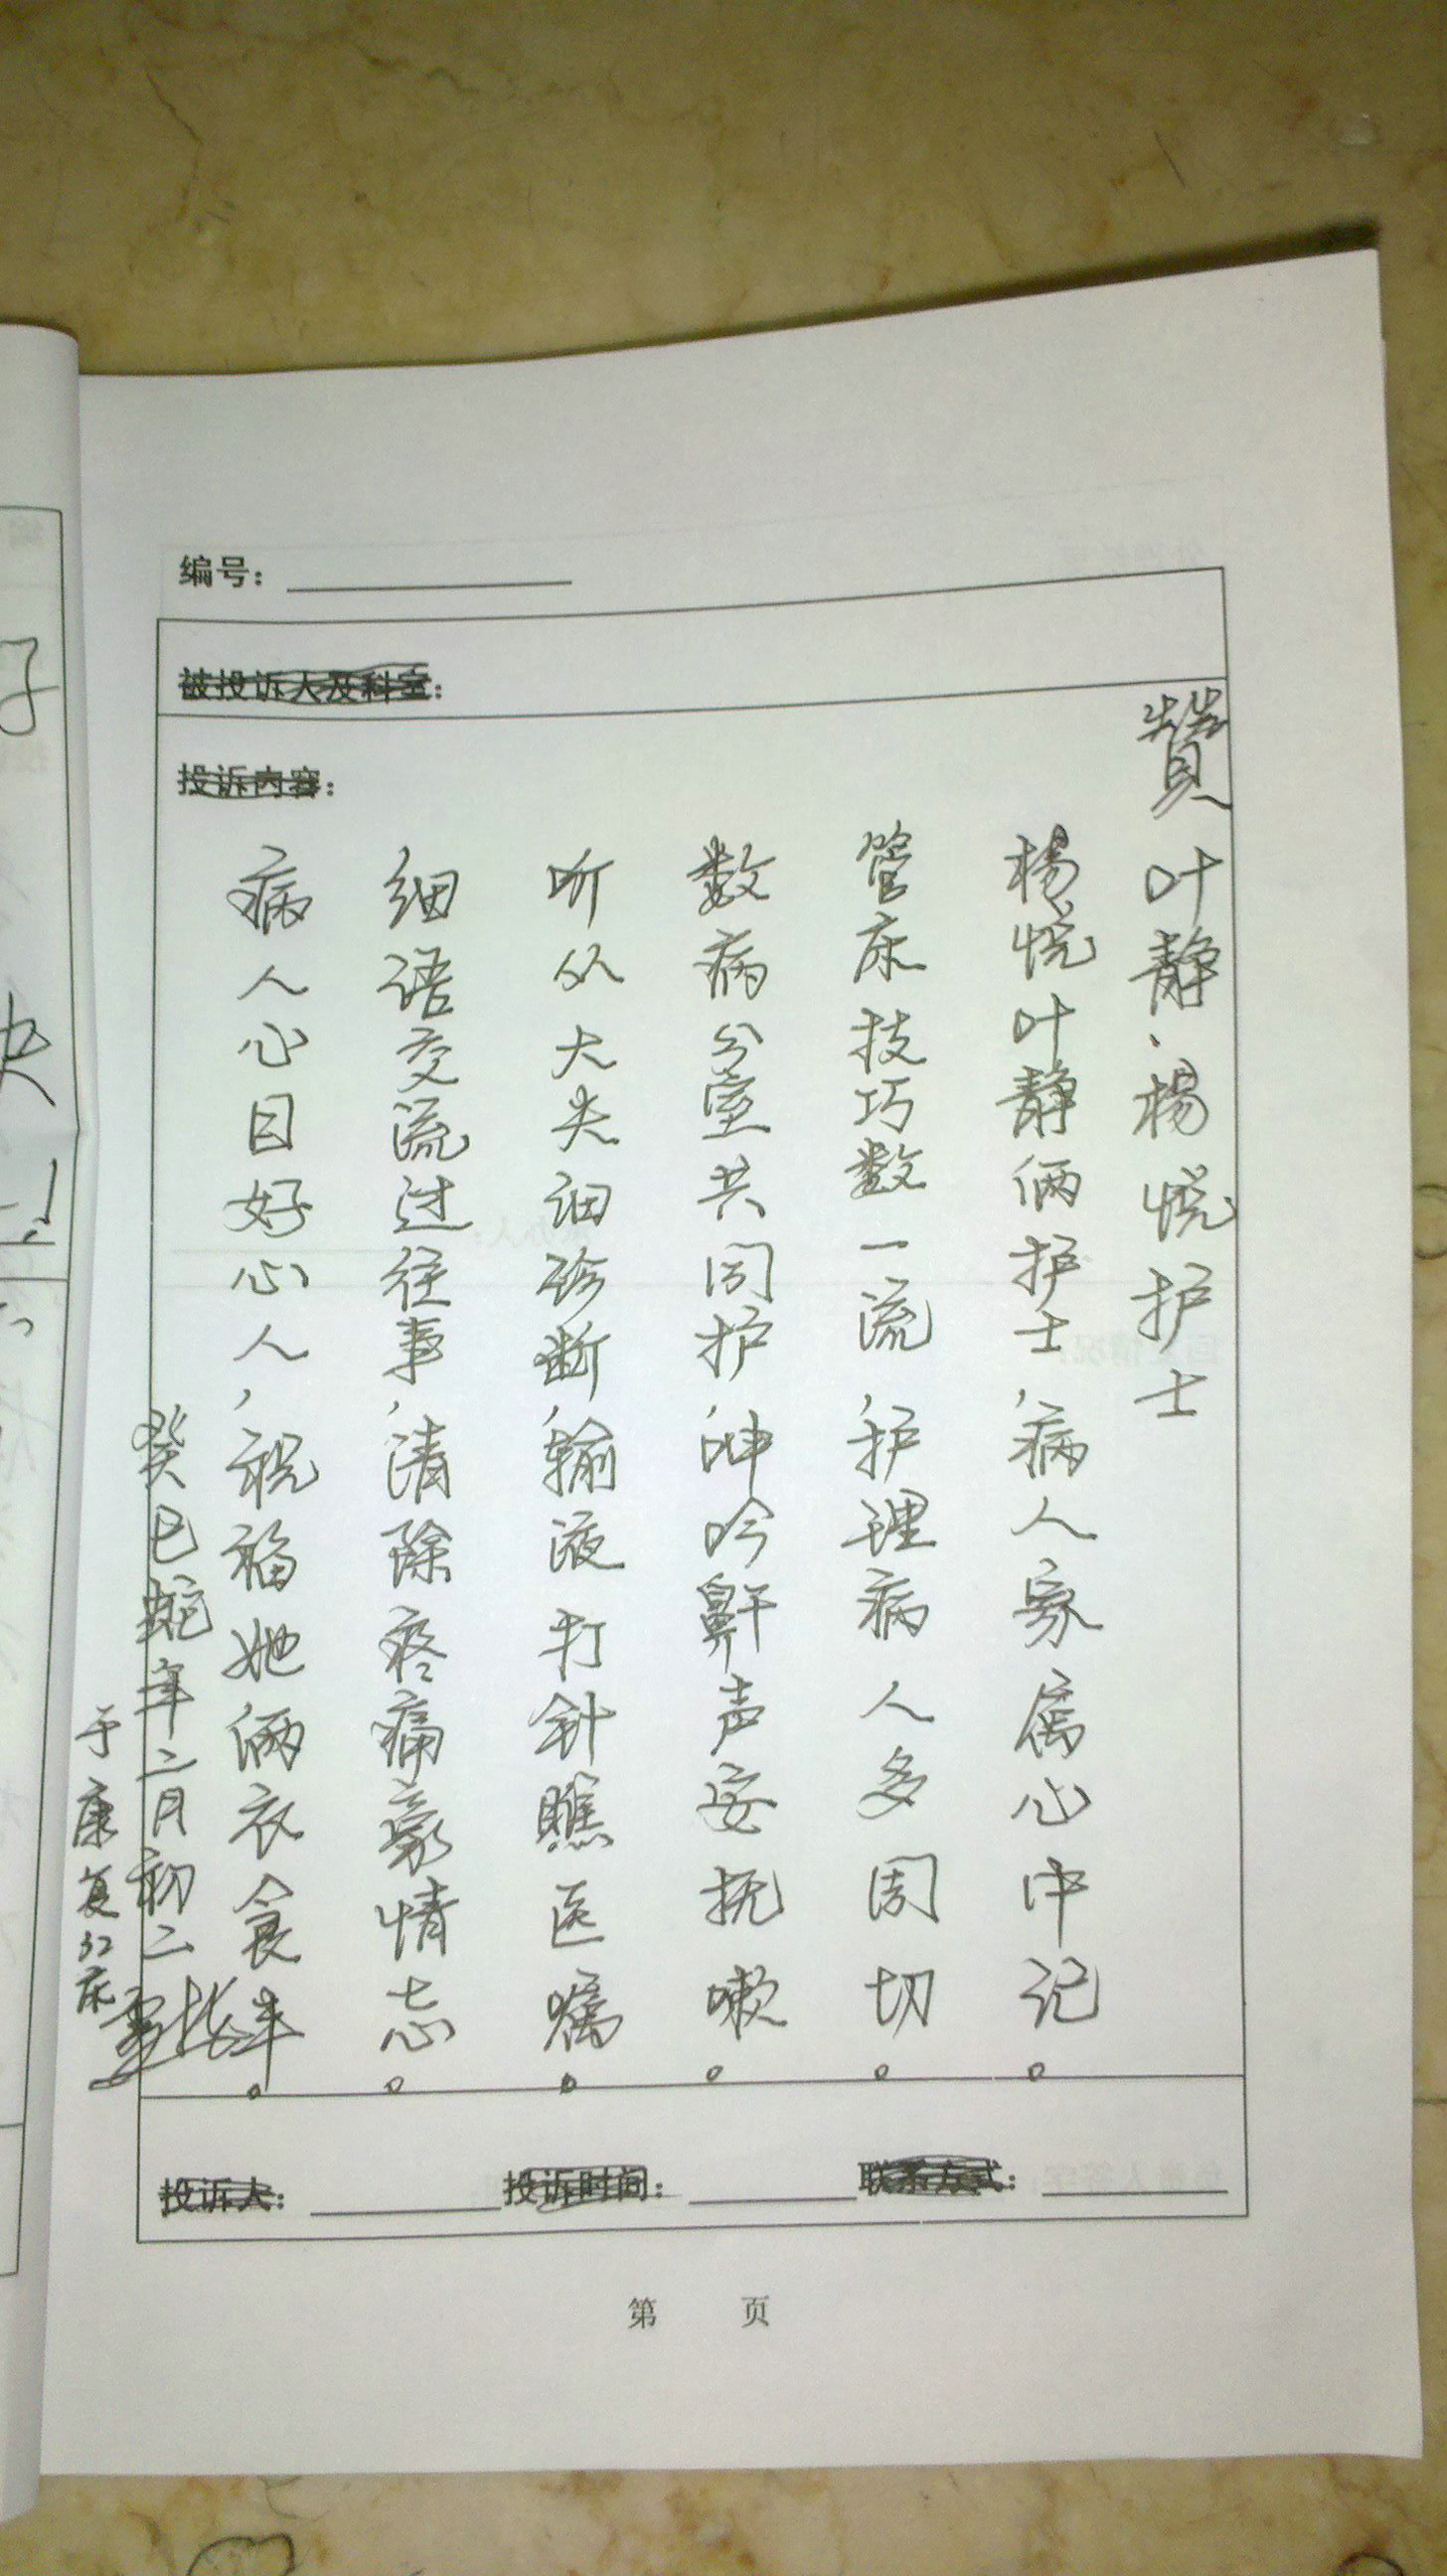 编号：
被投诉人及科室：
投诉内容：
赞叶静、杨悦护士
杨悦叶静俩护士，病人家属心中记。
管床技巧数一流，护理病人多周切。
数病公室共同护，呻吟鼾声安抚嗽。
听从大夫细诊断，输液打针瞧医嘱。
细语交流过往事，清除疼痛豪情志。
病人心目好心人，祝福她俩衣食丰。
癸巳蛇年二月初二
于康复32床
投诉人：
投诉时间：
联系方式：
第 页